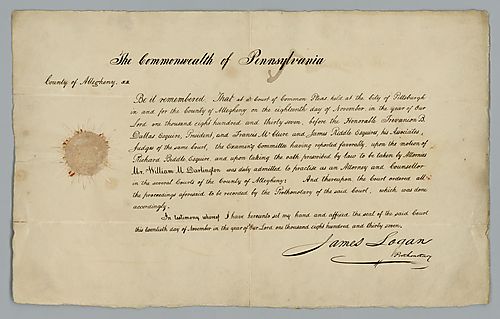 The Commonwealth of Pennsylvania
County of Allegheny, ss
Be it remembered, That at a Court of Common Pleas held at the City of Pittsburgh
in and for the County of Allegheny on the eighteenth day of November, in the year of Our
Lord one thousand eight hundred and thirty seven, before the Honorable Trevanion B.
Dallas Esquire, President, and Francis McClure and James Riddle Esquires, his Associates,
Judges of the same Court, the Examining Committee having reported favorably, upon the motion of
Richard Biddle Esquire, and upon taking the oath prescribed by law to be taken by Attornies
Mr. William M. Darlington was duly admitted to practise as an Attorney and Counsellor
in the several Courts of the County of Allegheny; And thereupon the Court ordered all
the proceedings aforesaid to be recorded by the Prothonotary of the said Court, which was done
accordingly.
In testimony whereof I have hereunto set my hand and affixed the seal of the said Court
this twentieth day of November in the year of Our Lord one thousand eight hundred and thirty seven.
James Logan
Prothonotary